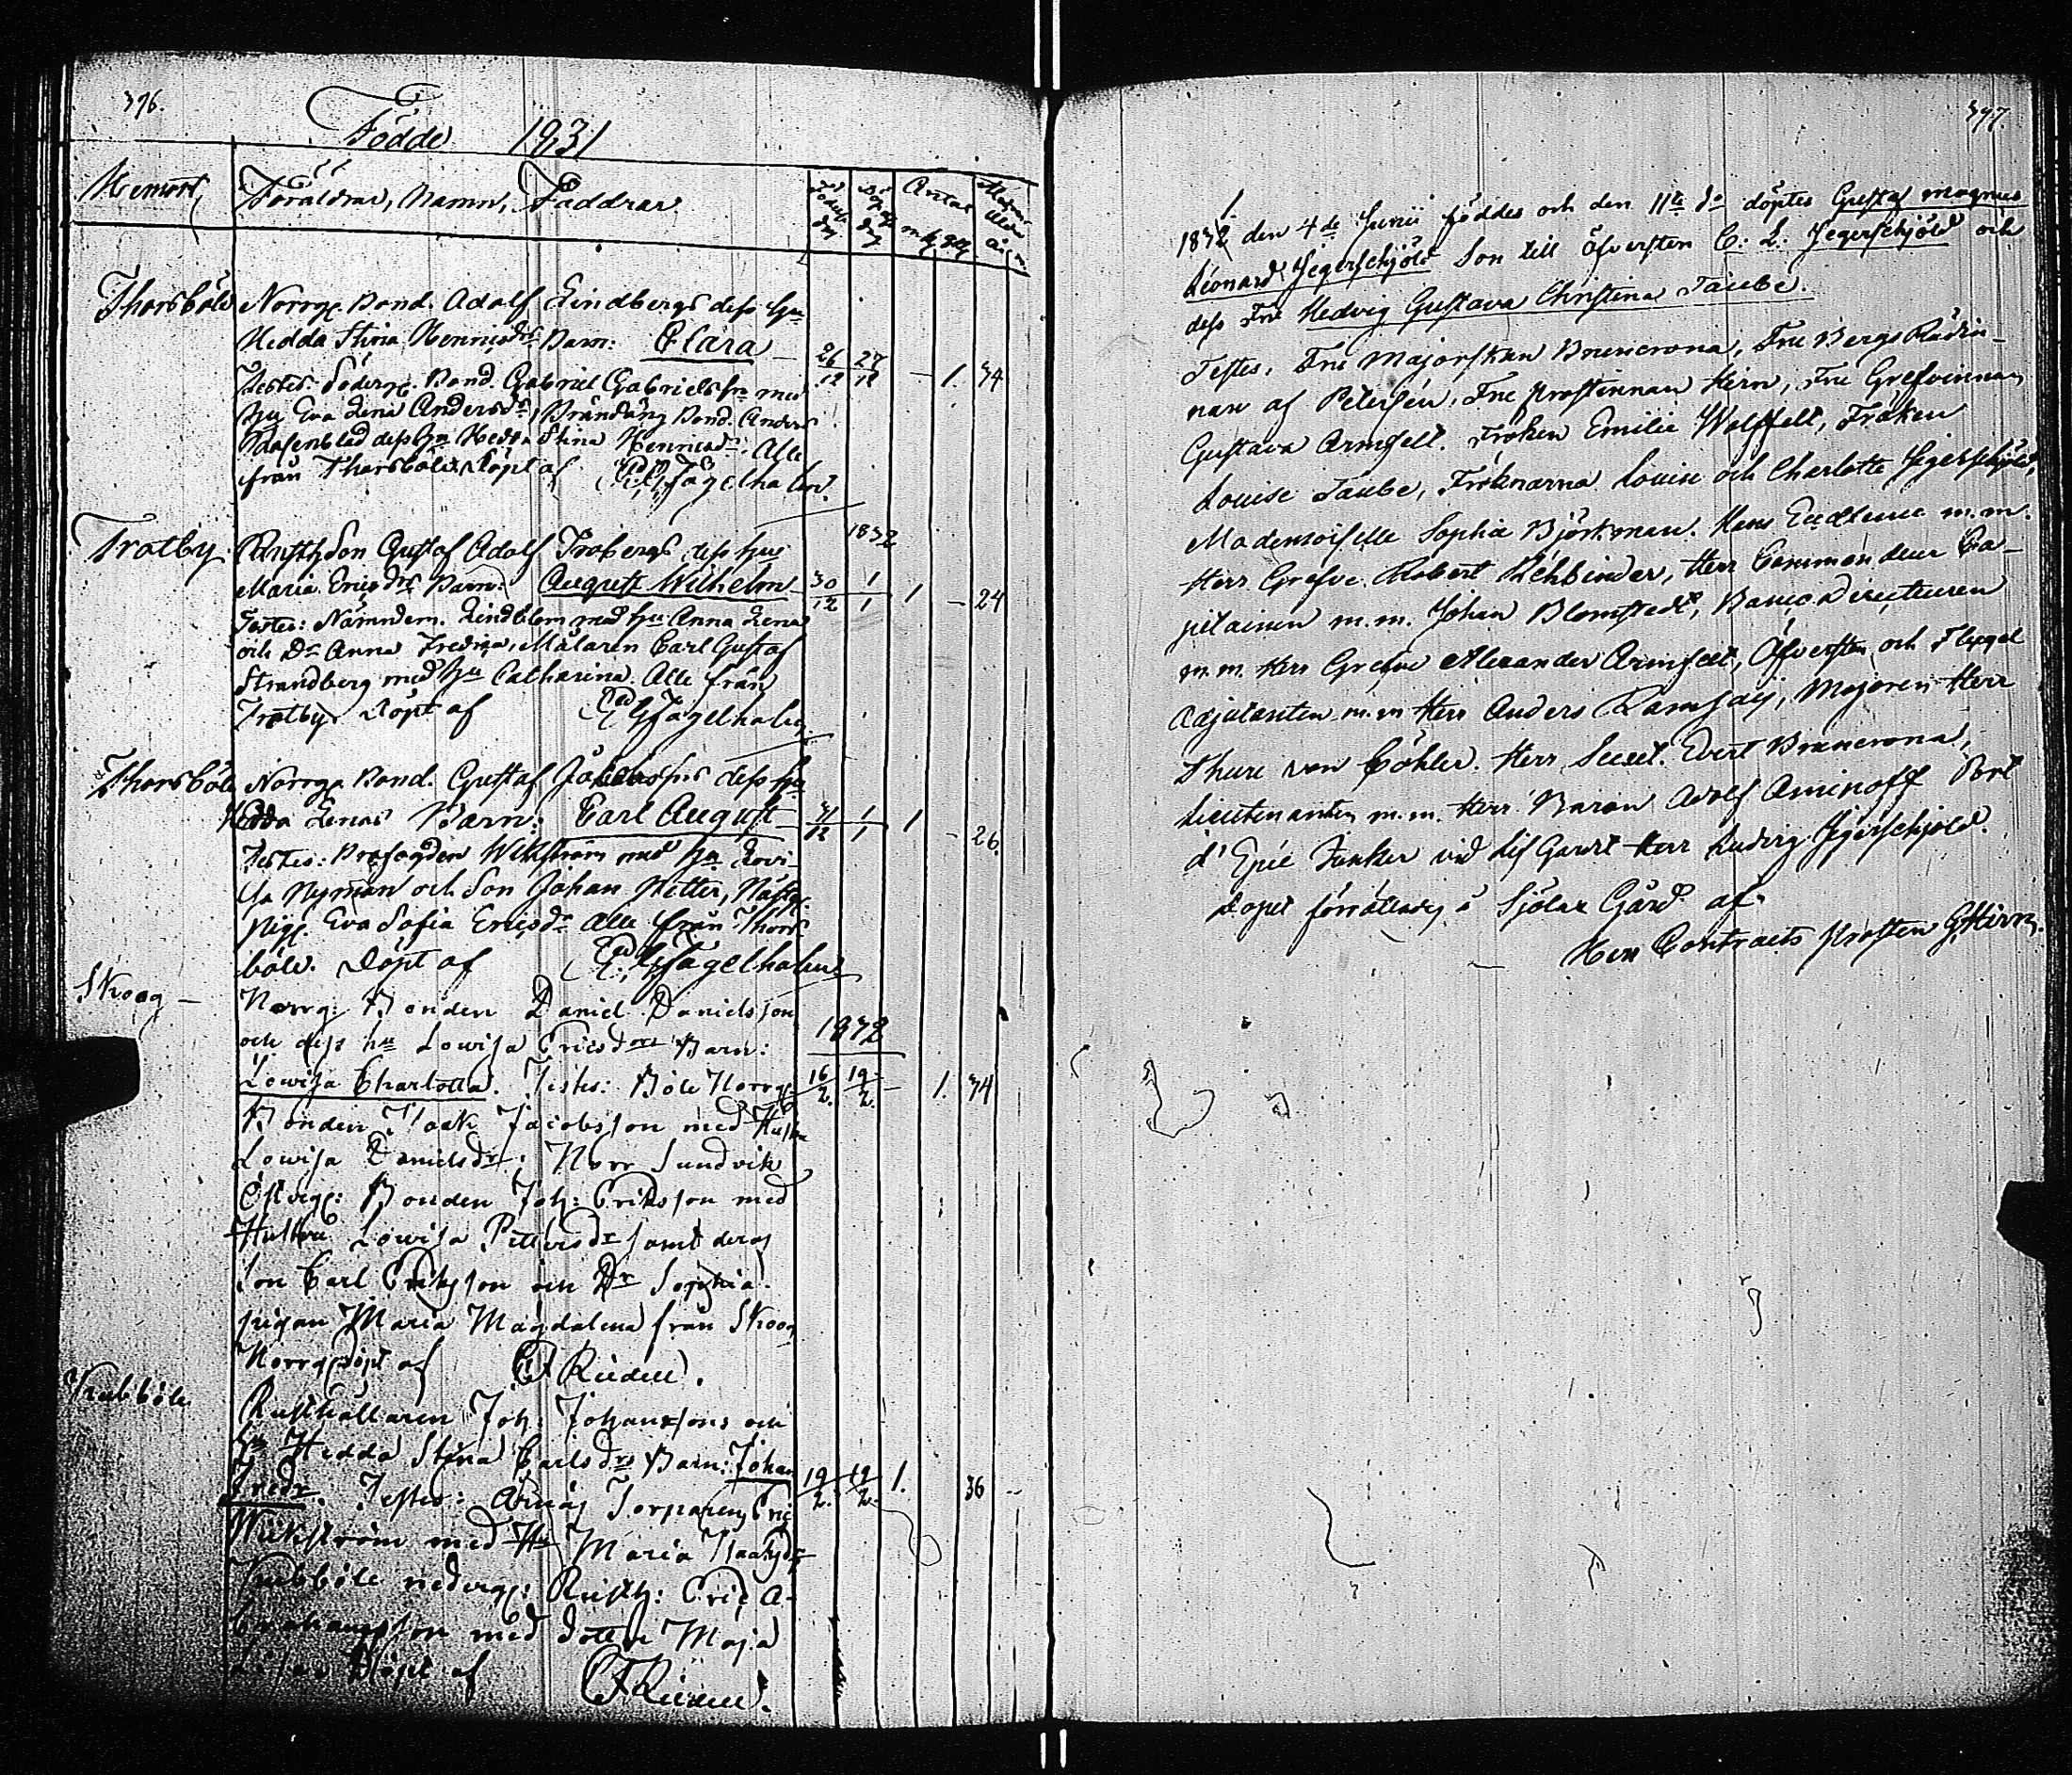 376.
Födde 1831
Hemort, Föräldrar, Namn, Faddrar
Födelse dag
Döpelse dag
Antal
m.k. q.k.
Modrens ålder
Thorsböle Norrg. Bond. Adolf Lindbergs dess hu
Hedda Stina Henricsdrs Barn: Clara — 26/12 27/12 — 1. 34
Testes: Söderg. Bond. Gabriel Gabrielsson med
hu Eva Lena Andersdr, Bränäng Bond. Anders
Rosenblad dess hu Hedda Stina Henricsdr. Alle
från Thorsböle. Döpt af Fagelhalm.
1832
Trotby. Rusth. Son Gustaf Adolf Frobergs, dess hus
Maria Ericsdrs Barn: August Wilhelm 30/12 1/1 1 — 24
Testes: Nämndem. Lindblom med hu Anna Lena
och Dr Anna Fredrica, Målaren Carl Gustaf
Strandberg med hu Catharina. Alle från
Trotby. Döpt af Fagelhalm.
Thorsböle Norrg. Bond. Gustaf Jacobssons dess hu
Hedda Lenas Barn: Carl August — 31/12 1/1 1 — 26.
Testes: Wikström med hu Lovi-
sa Nyman och Son Johan Petter,
Pig. Eva Sofia Ericsdr Alle från Thors-
böle. Döpt af Fagelhalm
Skoog — Norrg: Bonden Daniel Danielsson
och dess hu Lowisa Ericsdors Barn: 1832
Lowisa Charlotta. Testes: Böle Norrg. 16/2. 19/2. — 1. 34
Bonden Isaak Jacobsson med Hustru
Lowisa Danielsdr: Norr Sundvik
Österg: Bonden Joh: Eriksson med
Hustru Lowisa Pettersdr samt deras
Son Carl Eriksson och Dr Sophia.
pigan Maria Magdalena från Skoog
Norrg döpt af
Rusthållaren Joh: Johanssons och
hu Hedda Stina Carlsdrs Barn: Johan
Fredr. Testes: Torparen Eric 19/2. 19/2. 1. 36 —
Wickström med Hu Maria Isaksdr
nederg: Rusth: Eric A-
brahamsson med dotter Maja
Lisa. Döpt af
377.
1832 den 4de Junii föddes och den 11te do döptes Gustaf Magnus
Léonard Jegerschjöld Son till Öfversten C: L: Jegerschjöld och
dess Fru Hedvig Gustava Christina Taube.
Testes, Fru Majorskan Bruncrona, Fru BergsRådin-
nan af Petersén, Fru Prostinnan Hirn, Fru Grefvinnan
Gustava Armfelt. Fröken Emilie Wolffelt, Fröken
Louise Taube, Fröknarna Louise och Charlotte Jegerschjöld,
Mademoiselle Sophia Björkman. Hans Excellence m.m.
Herr Grefve Robert Rehbinder, Herr Commendeur Ca-
pitainen m.m. Johan Blomstedt, Banco Directeuren
m.m. Herr Grefve Alexander Armfelt, Öfversten och Flygel
Adjutanten m.m Herr Anders Ramsay, Majoren Herr
Thure von Cöhler. Herr Evert Bruncrona,
Lieutenanten m.m. Herr Baron Adolf Aminoff Port
d'Epée Junker vid Lif Gardet Herr Ludvig Jegerschjöld.
Dopet förrättades å Sjölax Gård af
Herr Contracts Prosten G Hirn.